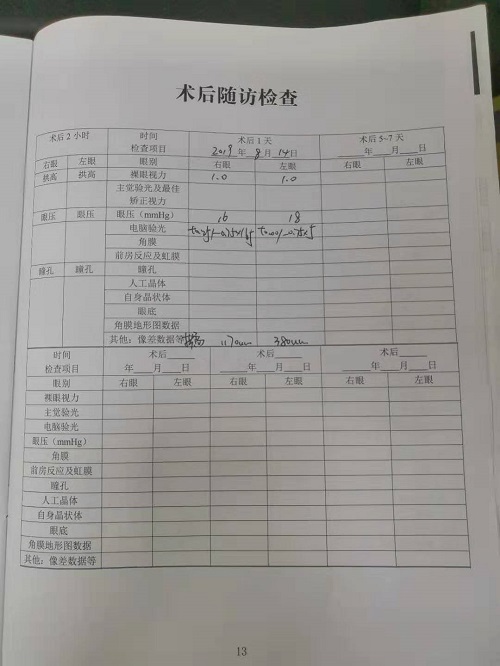 术后随访检查
术后2小时 时间 术后1天 术后5~7天
检查项目 2019年8月14日 ____年____月____日
右眼 左眼 眼别 右眼 左眼 右眼 左眼
拱高 拱高 裸眼视力 1.0 1.0
主觉验光及最佳
矫正视力
眼压 眼压 眼压（mmHg） 16 18
电脑验光
角膜
前房反应及虹膜
瞳孔 瞳孔 瞳孔
人工晶体
自身晶状体
眼底
角膜地形图数据
其他：像差数据等 拱高
时间 术后____ 术后____ 术后____
检查项目 年____月____日 ____年____月____日 ____年____月____日
眼别 右眼 左眼 右眼 左眼 右眼 左眼
裸眼视力
主觉验光
电脑验光
眼压（mmHg）
角膜
前房反应及虹膜
瞳孔
人工晶体
自身晶状体
眼底
角膜地形图数据
其他：像差数据等
13